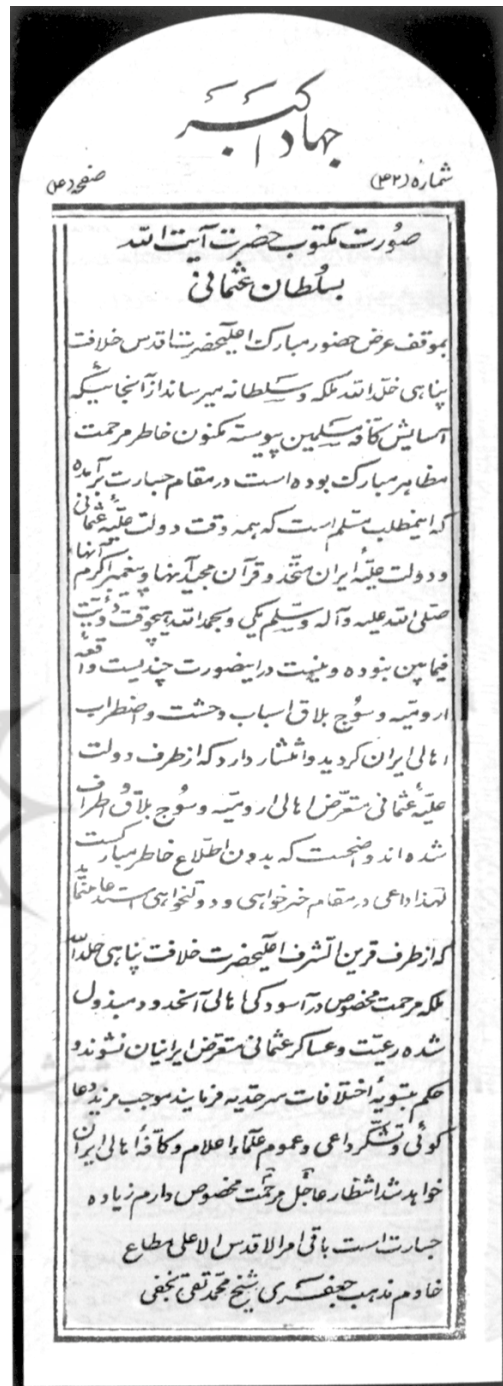 جهاد اکبر
شماره (۴۲)
صفحه (۴)
صورت مکتوب حضرت آیت الله
بسلطان عثمانی
بموقف عرض حضور مبارک اعلیحضرت اقدس خلافت
پناهی خلد الله ملکه و سلطانه میرساند از آنجائیکه
آسایش کافه مسلمین پیوسته مکنون خاطر مرحمت
مظاهر مبارک بوده است در مقام جسارت برآمده
که اینمطلب مسلم است که همه وقت دولت علیّه عثمانی
و دولت علیّه ایران متحد و قرآن مجید آنها و پیغمبر اکرم آنها
صلی الله علیه و آله و سلم یکی و بحمد الله هیچوقت دوئیت
فیما بین نبوده و نیست در اینصورت چندیست واقعه
ارومیّه و سوج بلاق اسباب وحشت و اضطراب
اهالی ایران گردیده و انتشار دارد که از طرف دولت
علیّه عثمانی متعرّض اهالی ارومیّه و سوج بلاق و اطراف
شده اند واضحست که بدون اطّلاع خاطر مبارکست
لهذا داعی در مقام خیرخواهی و دولتخواهی استدعا
که از طرف قرین الشرف اعلیحضرت خلافت پناهی خلد الله
ملکه مرحمت مخصوص در آسودگی اهالی آنحدود مبذول
شده رعیّت و عساکر عثمانی متعرّض ایرانیان نشوند و
حکم بتسویهٔ اختلافات سرحدیه فرمایند موجب مزید دعا
گوئی و تشکّر داعی و عموم علماء اعلام و کافهٔ اهالی ایران
خواهد شد انتظار عاجل مرحمت مخصوص دارم زیاده
جسارت است باقی امر الاقدس الاعلی مطاع
خادم مذهب جعفری شیخ محمّد تقی نجفی